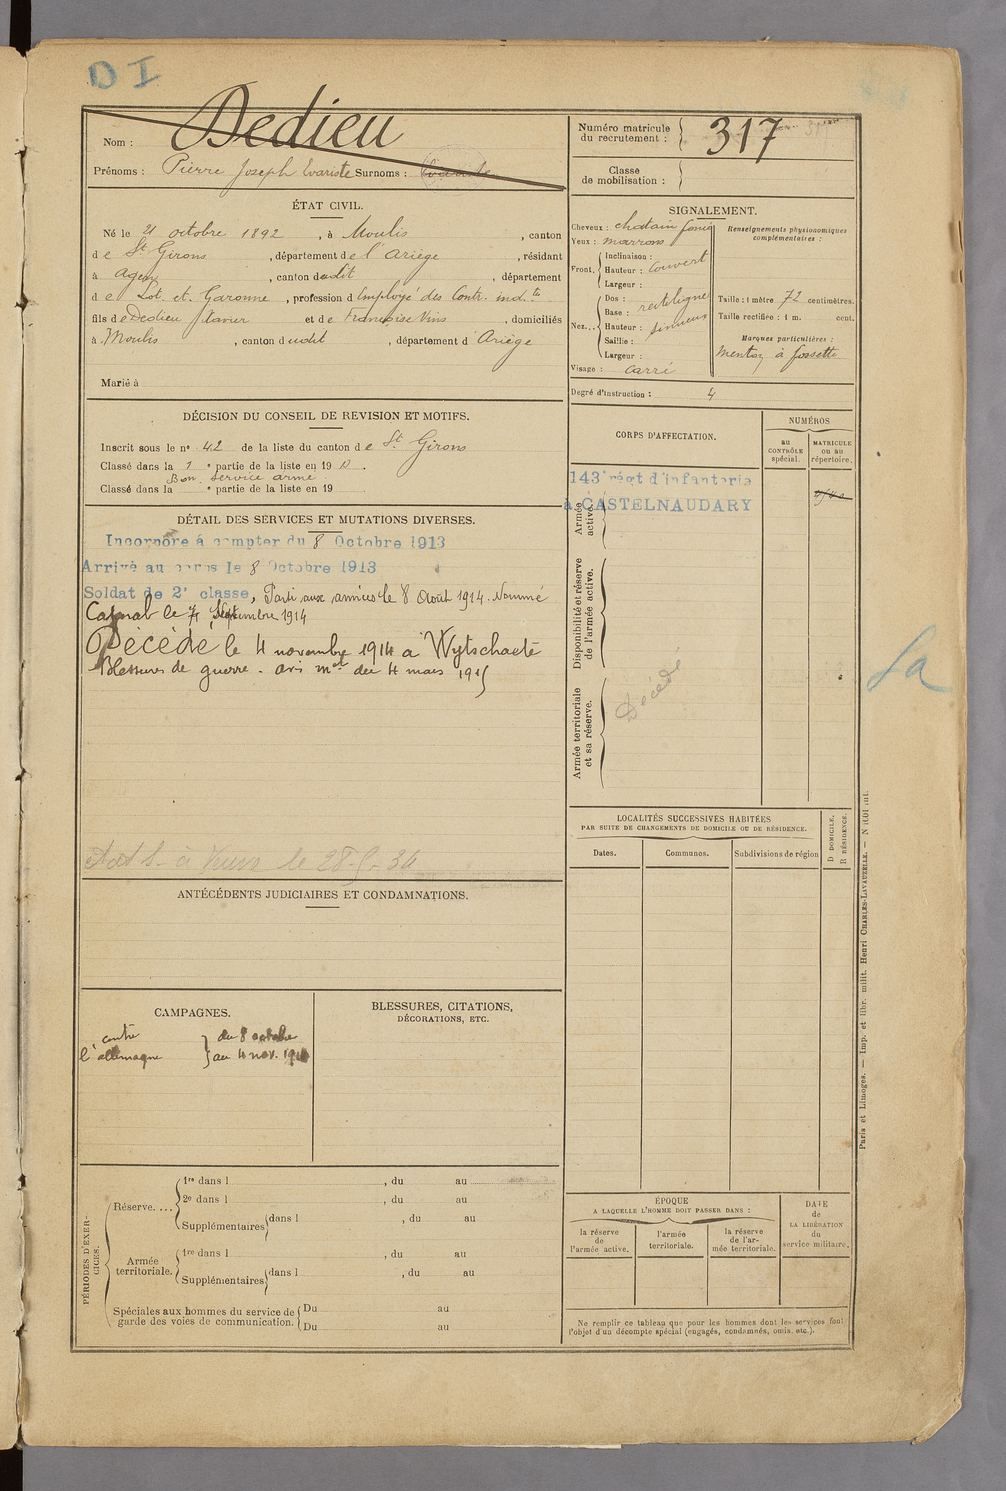 DI
Nom : Dedieu
Prénoms : Pierre Joseph Evariste Surnoms :
Numéro matricule du recrutement : 317
Classe de mobilisation :
ÉTAT CIVIL.
Né le 21 octobre 1892, à Moulis, canton
de St Girons, département de l'Ariège, résidant
à Agen, canton dudit, département
de Lot et Garonne, profession d'Employé des Contr. ind.tes
fils de Dedieu Xavier et de Françoise Vins, domiciliés
à Moulis, canton dudit, département d Ariège
Marié à
SIGNALEMENT.
Cheveux : chatain foncé
Yeux : marrons
Front. Inclinaison :
Hauteur : couvert
Largeur :
Nez... Dos : rectiligne
Base :
Hauteur : sinueux
Saillie :
Largeur :
Visage : carré
Renseignements physionomiques complémentaires :
Taille : 1 mètre 72 centimètres.
Taille rectifiée : 1 m. cent.
Marques particulières :
menton à fossette
Degré d'instruction : 4
DÉCISION DU CONSEIL DE REVISION ET MOTIFS.
Inscrit sous le no 42 de la liste du canton de St Girons
Classé dans la 1 e partie de la liste en 19
Bon service armé
Classé dans la e partie de la liste en 19
CORPS D'AFFECTATION.
NUMÉROS
au CONTRÔLE spécial.
MATRICULE ou au répertoire.
Armée active.
143e régt d'infanterie
à CASTELNAUDARY
Disponibilité et réserve de l'armée active.
Armée territoriale et sa réserve.
Décédé
Sa
DÉTAIL DES SERVICES ET MUTATIONS DIVERSES.
Incorporé à compter du 8 Octobre 1913
Arrivé au corps le 8 Octobre 1913
Soldat de 2e classe, Parti aux armées le 8 Août 1914. Nommé
Caporal le Septembre 1914
Décédé le 4 novembre 1914 à Wytschaete
Blessures de guerre. avis mel du 4 mars 1915
le 28-5-34
ANTÉCÉDENTS JUDICIAIRES ET CONDAMNATIONS.
LOCALITÉS SUCCESSIVES HABITÉES
PAR SUITE DE CHANGEMENTS DE DOMICILE OU DE RÉSIDENCE.
Dates.
Communes.
Subdivisions de région
D DOMICILE.
R RÉSIDENCE.
CAMPAGNES.
contre l'allemagne
du 8 octobre
au 4 nov. 1914
BLESSURES, CITATIONS,
DÉCORATIONS, ETC.
PÉRIODES D'EXERCICES.
Réserve. ...
1re dans l , du au
2e dans l , du au
Supplémentaires dans l , du au
Armée territoriale.
1re dans l , du au
Supplémentaires dans l , du au
Spéciales aux hommes du service de garde des voies de communication.
Du au
Du au
ÉPOQUE
A LAQUELLE L'HOMME DOIT PASSER DANS :
la réserve de l'armée active.
l'armée territoriale.
la réserve de l'armée territoriale.
DATE de LA LIBÉRATION du service militaire.
Ne remplir ce tableau que pour les hommes dont les services font
l'objet d'un décompte spécial (engagés, condamnés, omis, etc.).
Paris et Limoges. — Imp. et libr. milit. Henri CHARLES-LAVAUZELLE.